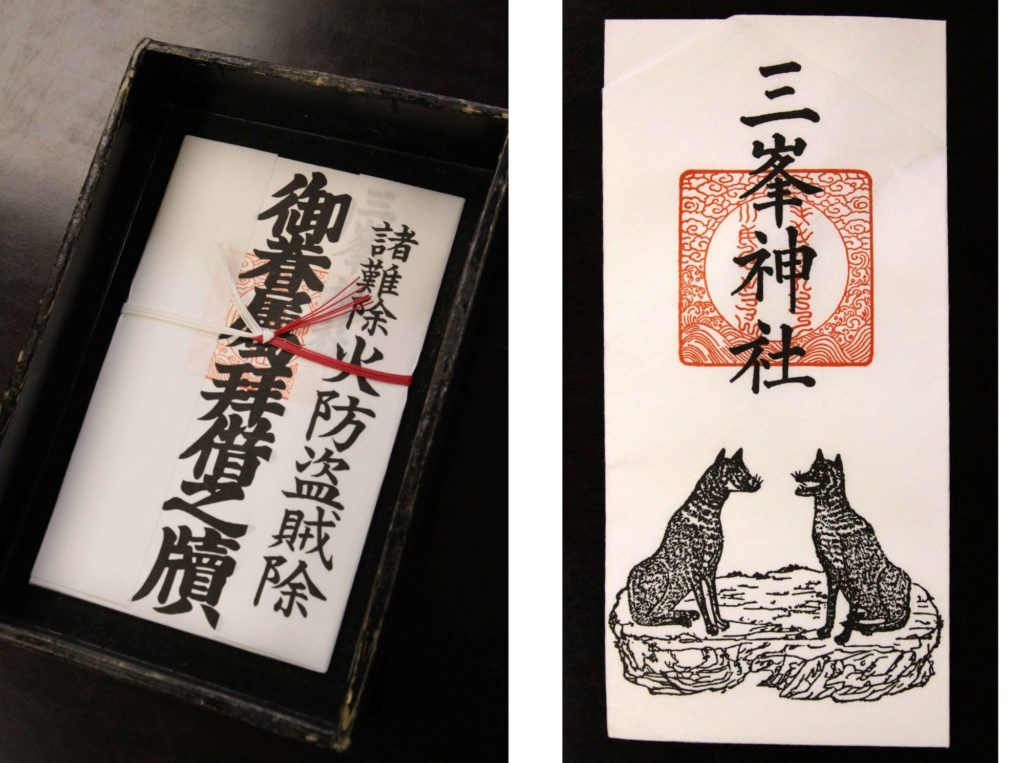 諸難除火防盗賊除
御眷属拝借之牘
三峯神社